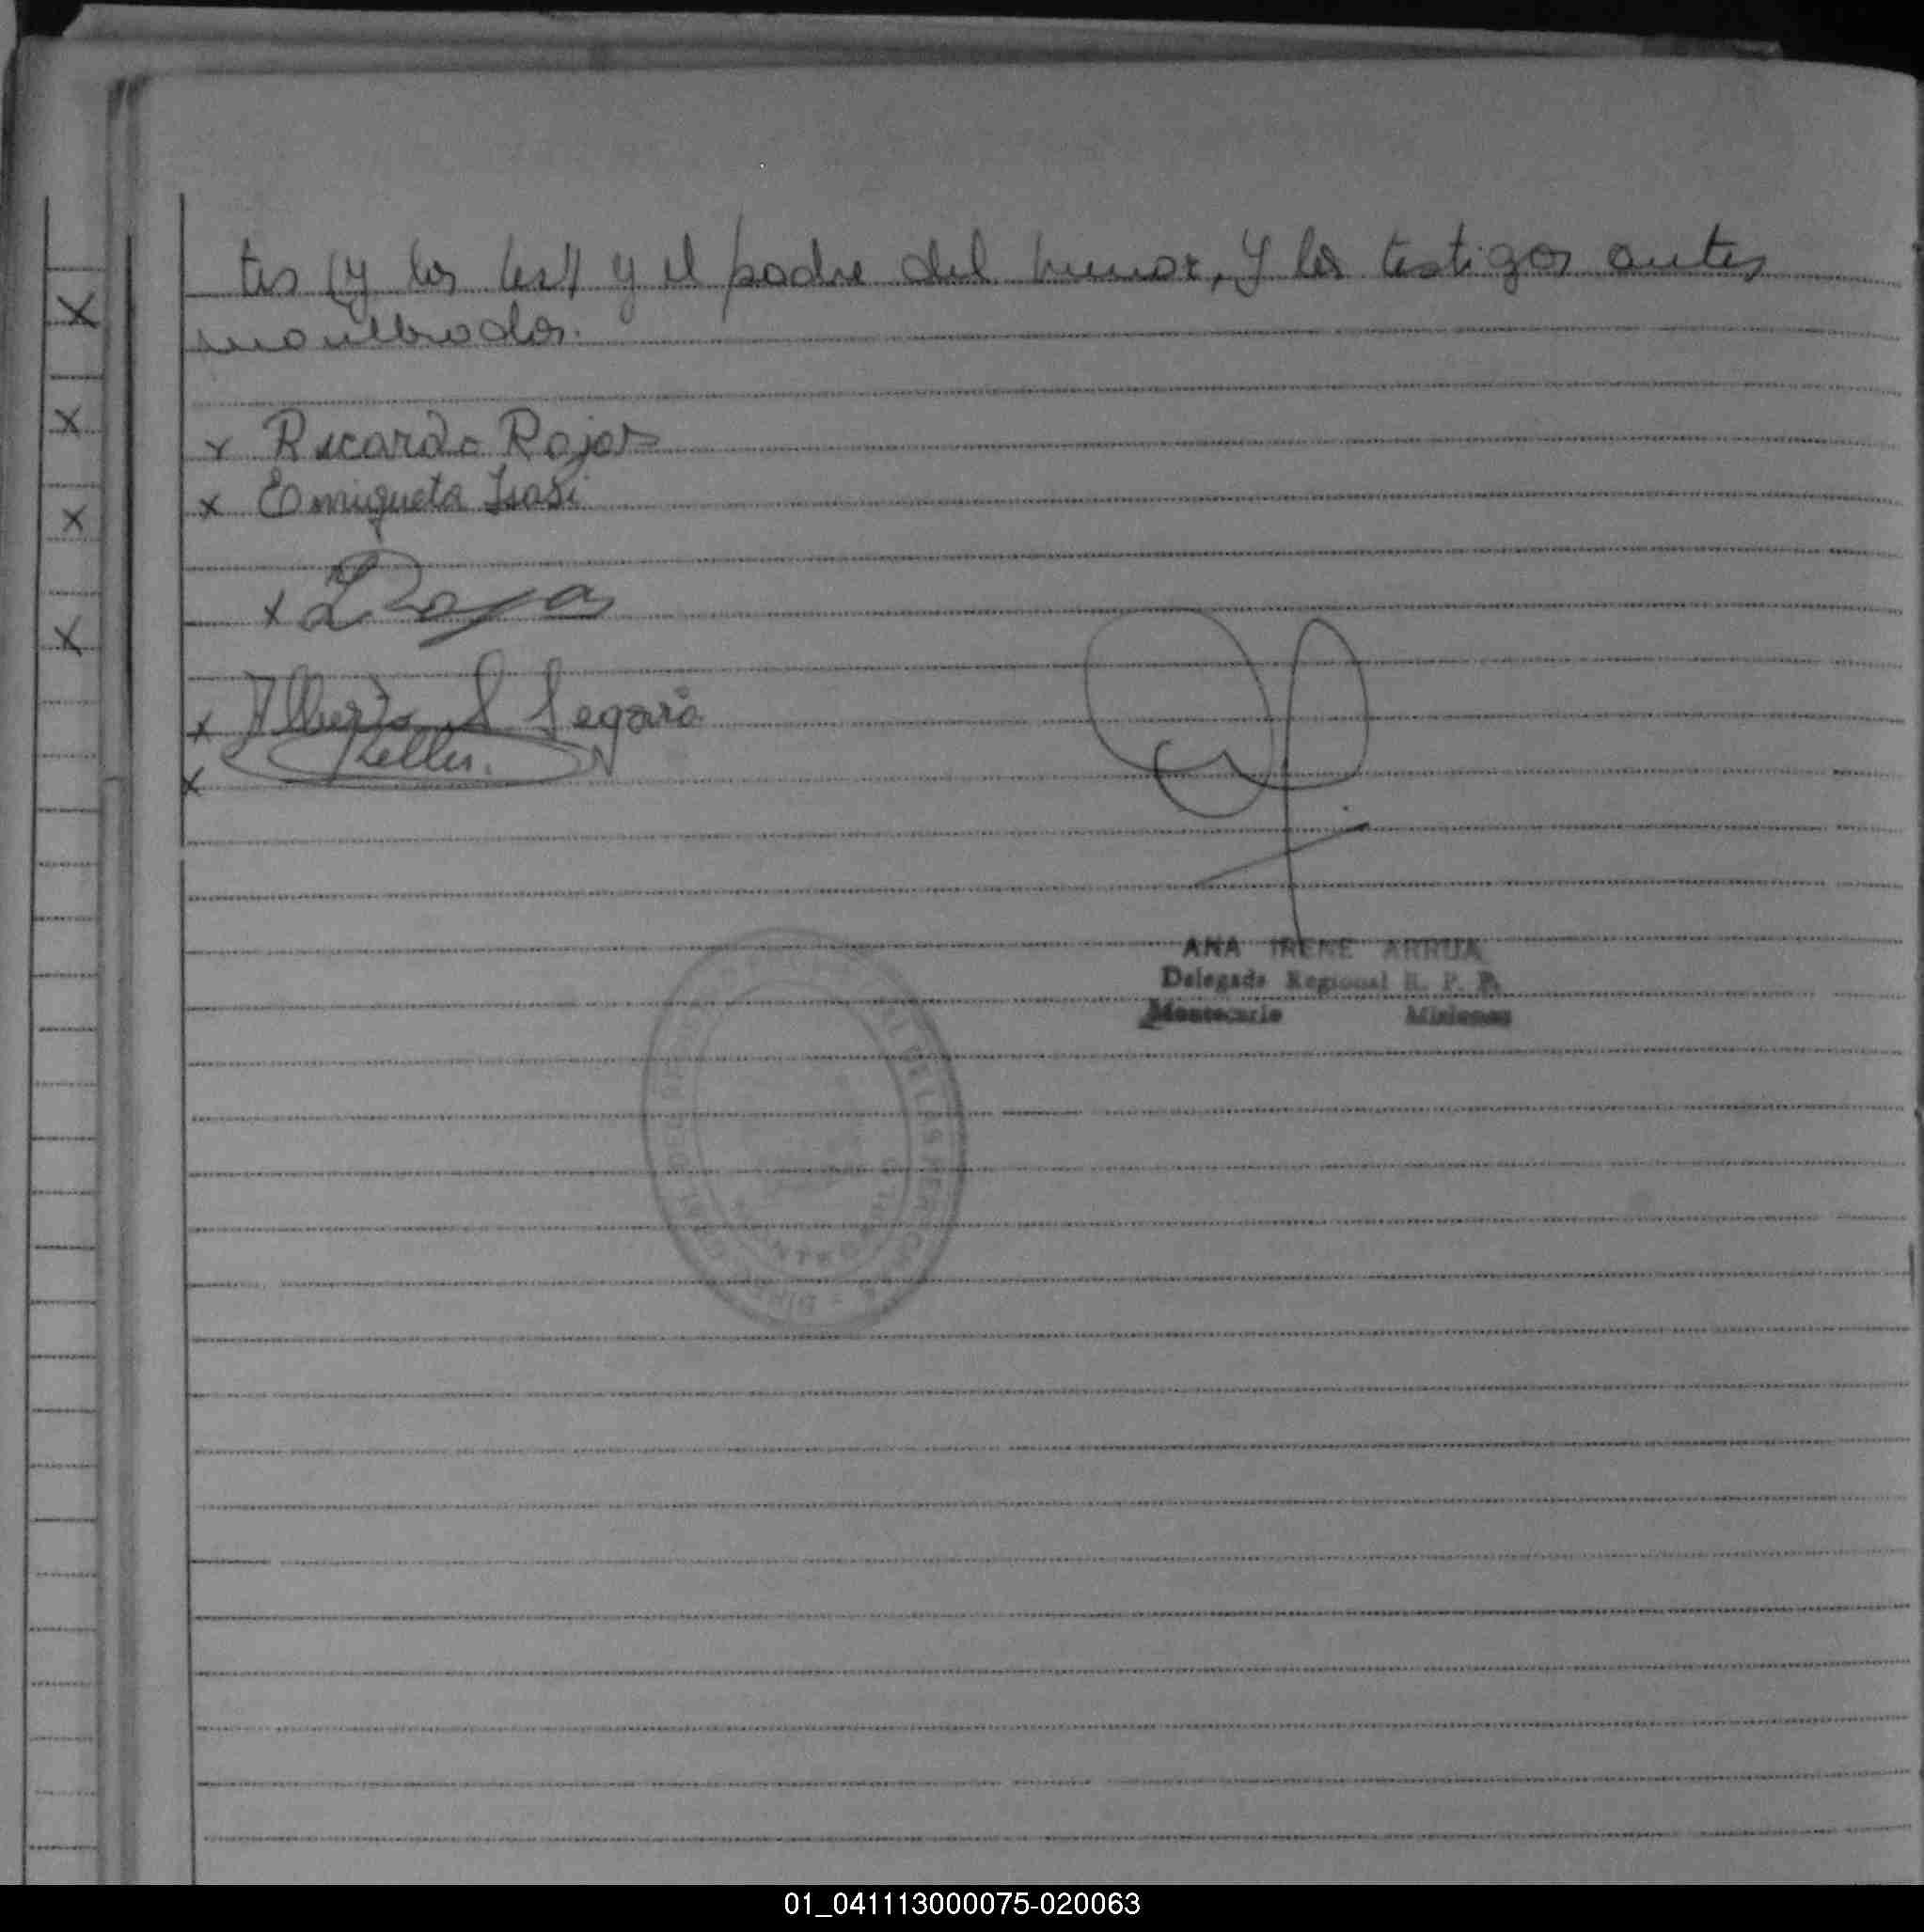 tes (y los tes) y el padre del menor, y los testigos antes
nombrados.
x Ricardo Rojas
x Enriqueta Isasi
x Rojas
x Alberto S Segovia
x Keller.
ANA IRENE ARRUA
Delegada Regional R. P. P.
Montecarlo Misiones
01_041113000075-020063